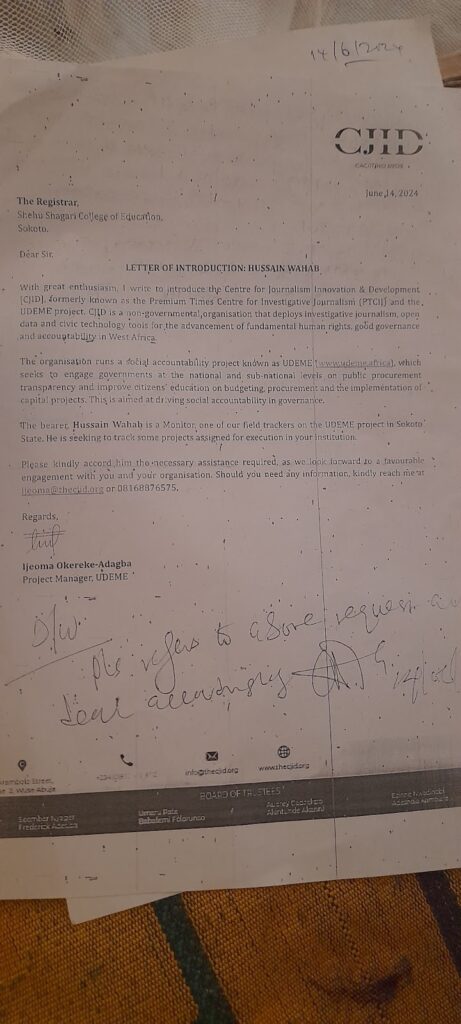 14/6/2024
CJID
June 14, 2024
The Registrar,
Shehu Shagari College of Education,
Sokoto.
Dear Sir,
LETTER OF INTRODUCTION: HUSSAIN WAHAB
With great enthusiasm, I write to introduce the Centre for Journalism Innovation & Development
(CJID), formerly known as the Premium Times Centre for Investigative Journalism (PTCIJ) and the
UDEME project. CJID is a non-governmental organisation that deploys investigative journalism, open
data and civic technology tools for the advancement of fundamental human rights, good governance
and accountability in West Africa.
The organisation runs a social accountability project known as UDEME (www.udeme.africa), which
seeks to engage governments at the national and sub-national levels on public procurement
transparency and improve citizens' education on budgeting, procurement and the implementation of
capital projects. This is aimed at driving social accountability in governance.
The bearer, Hussain Wahab is a Monitor, one of our field trackers on the UDEME project in Sokoto
State. He is seeking to track some projects assigned for execution in your institution.
Please kindly accord him the necessary assistance required, as we look forward to a favourable
engagement with you and your organisation. Should you need any information, kindly reach me at
ijeoma@thecjid.org or 08168876575.
Regards,
Ijeoma Okereke-Adagba
Project Manager, UDEME
D/W
Pls refers to above request
deal accordingly
info@thecjid.org www.thecjid.org
Street,
Wuse Abuja
BOARD OF TRUSTEES
Umaru Pate
Babafemi Folorunso
Akintunde Akanni